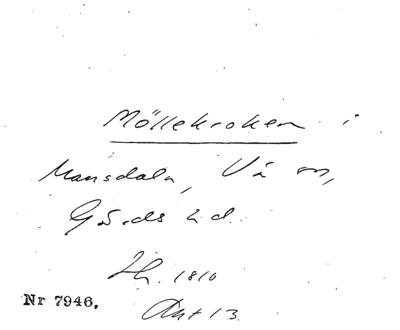 Möllekroken i
Mansdala, Vå sn,
Gärds hd.
Zh. 1810
Nr 7946.
Akt 13